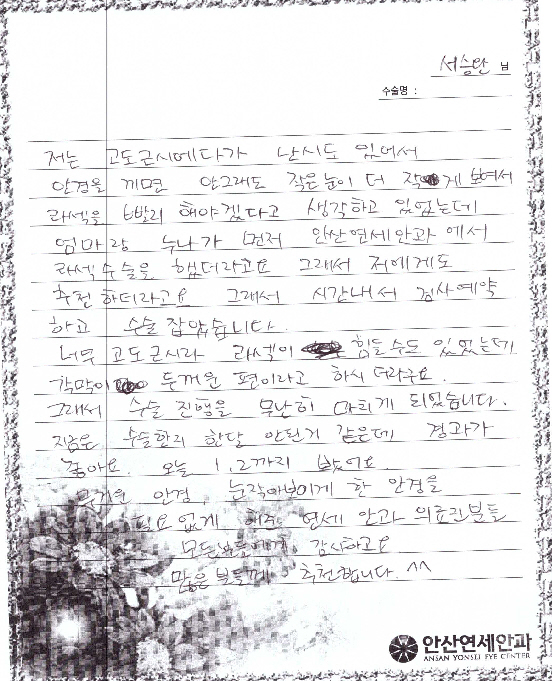 서승완 님
수술명 :
저는 고도근시에다가 난시도 있어서
안경을 끼면 안그래도 작은눈이 더 작게 보여서
라섹을 빨리 해야겠다고 생각하고 있었는데
엄마랑 누나가 먼저 안산연세안과에서
라섹수술을 했더라고요 그래서 저에게도
추천하더라고요 그래서 시간내서 검사예약
하고 수술 잡았습니다.
너무 고도근시라 라섹이 힘들수도 있었는데
각막이 두꺼운 편이라고 하시더라구요.
그래서 수술 진행을 무난히 마치게 되었습니다.
지금은 수술한지 한달 안된거 같은데 경과가
좋아요. 오늘 1.2까지 봤어요.
무거운 안경, 눈작아보이게 한 안경을
필요 없게 해준 연세 안과 의료진분들
모든분들에게 감사하고요
많은 분들께 추천합니다. ^^
안산연세안과
ANSAN YONSEI EYE CENTER